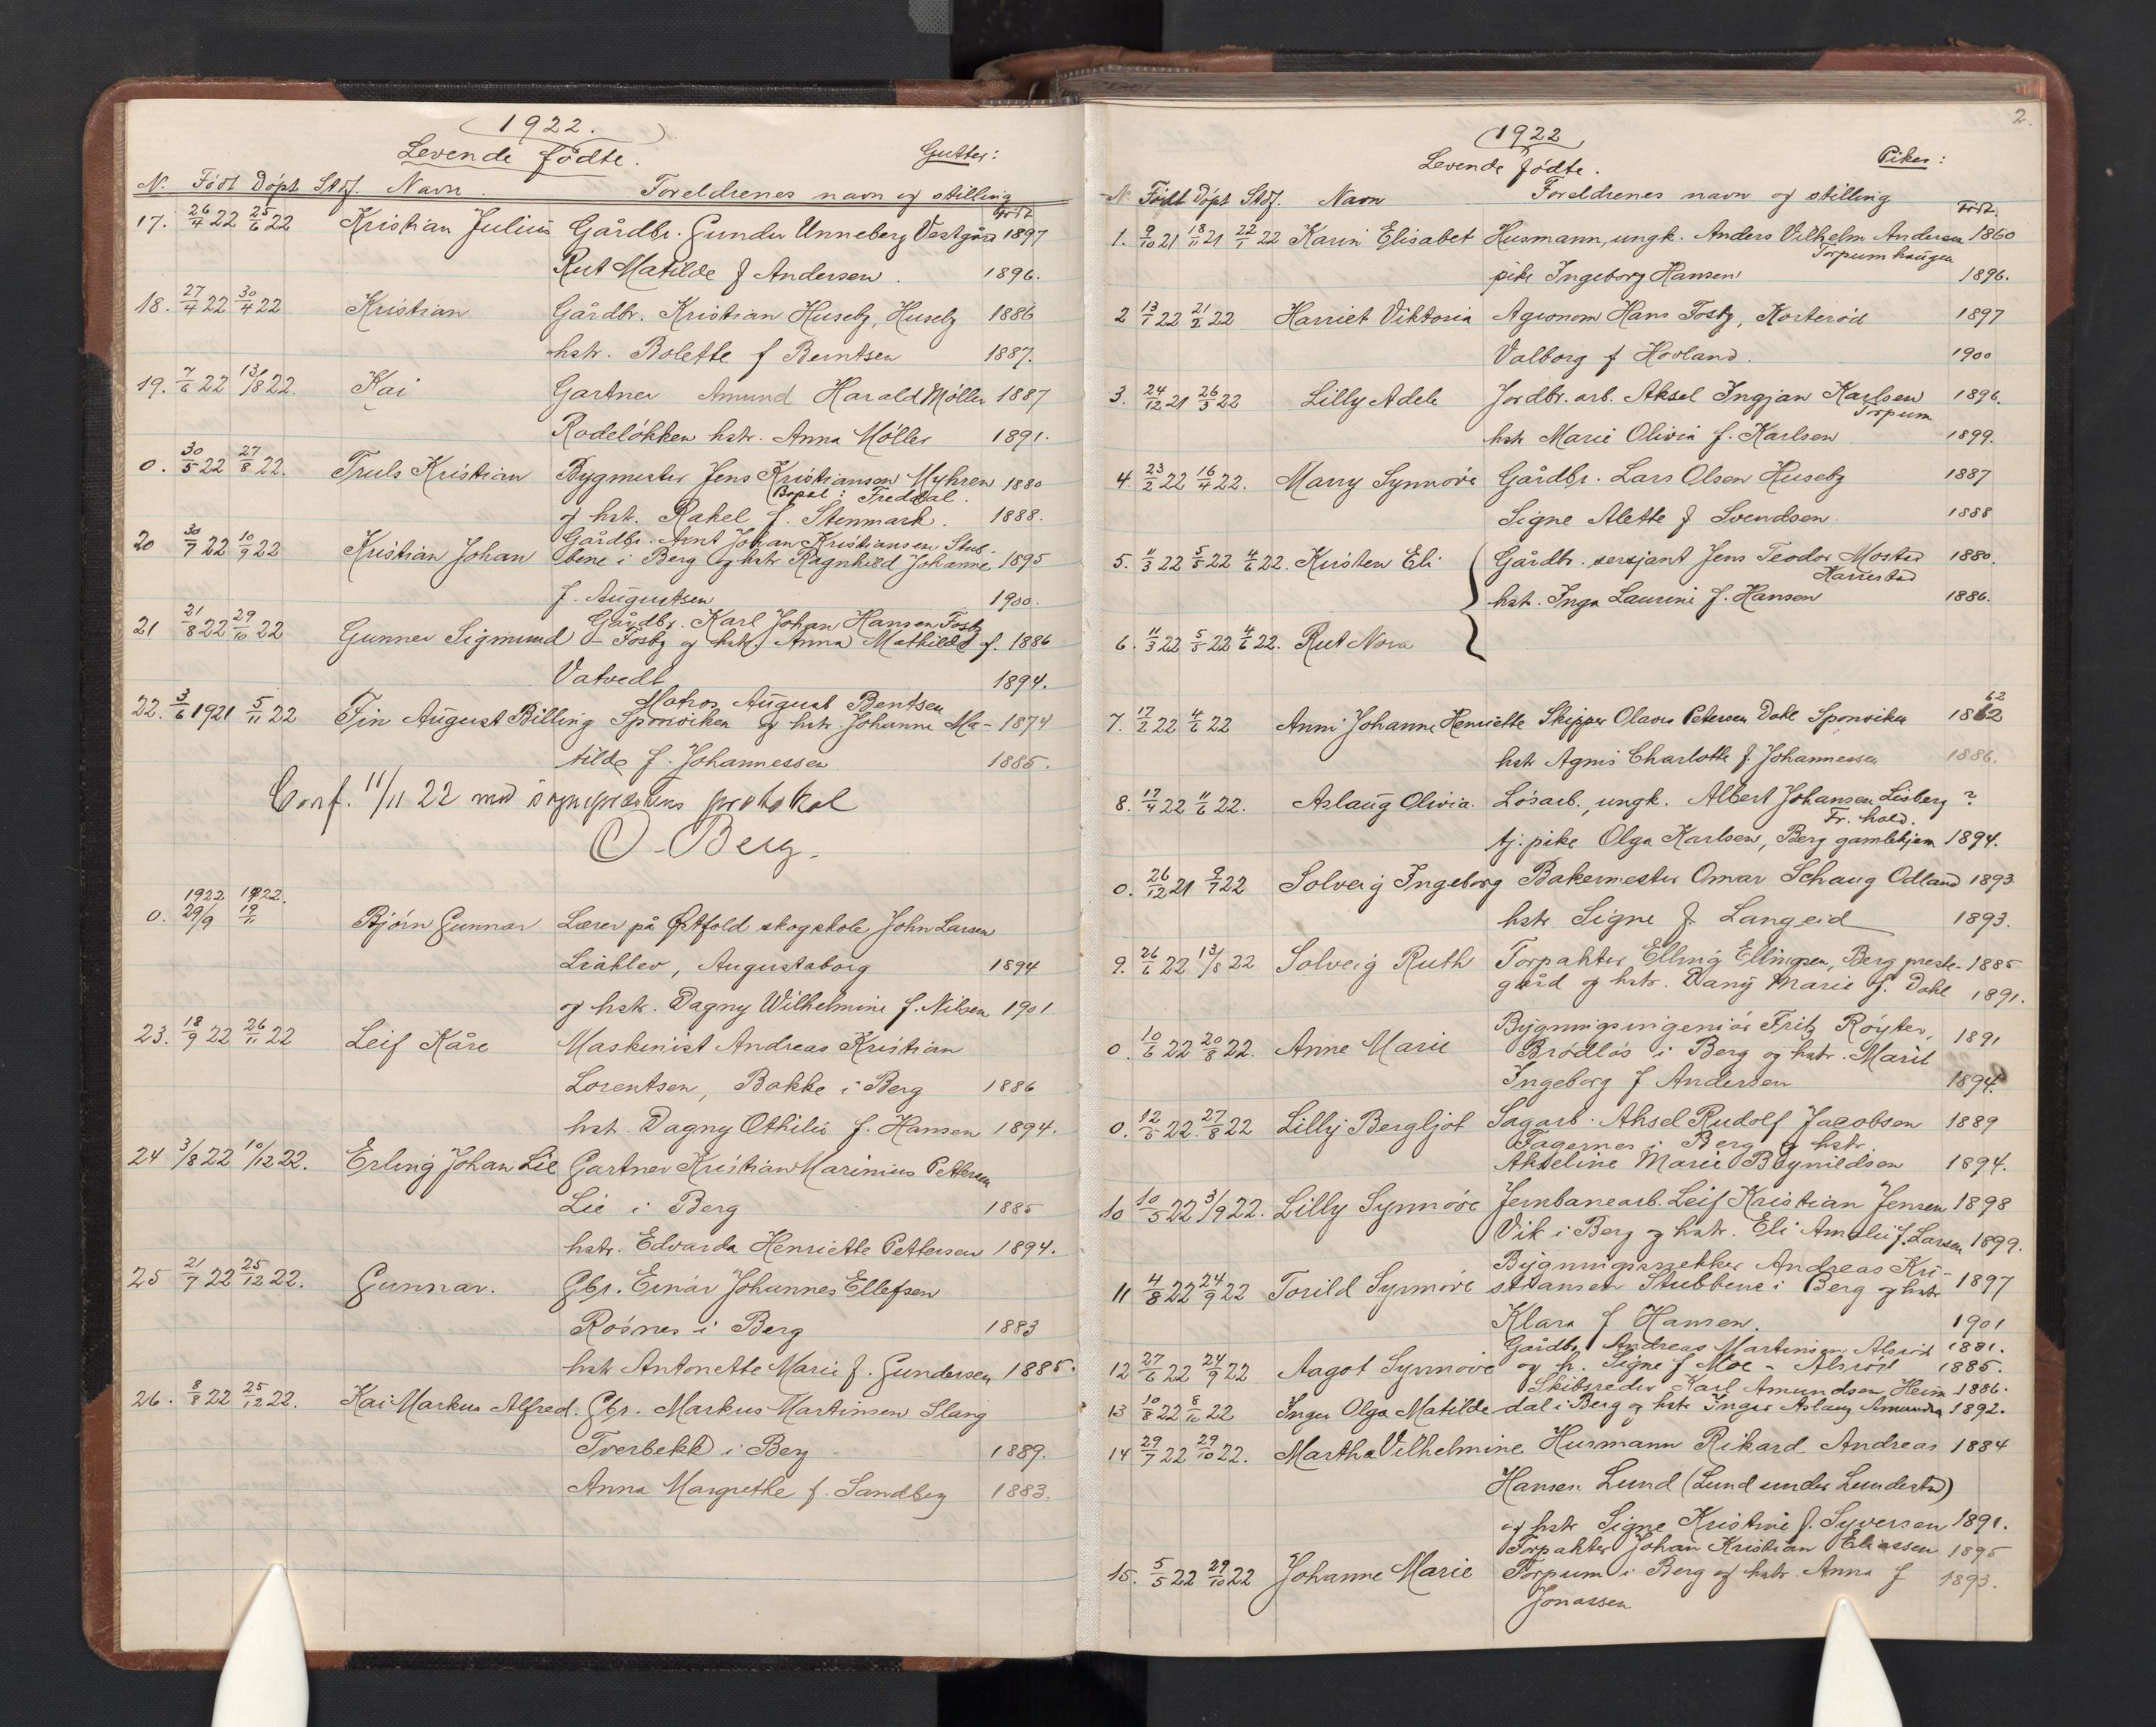 1922.
Levende fødte. Gutter:
N. Født Døpt Stdf. Navn. Foreldrenes navn og stilling
Født
17. 26/4 22 25/6 22 Kristian Julius Gårdbr. Gunder Unneberg Vestgård 1897
Rut Matilde f Andersen. 1896.
18. 27/4 22 30/4 22 Kristian Gårdbr. Kristian Huseby, Huseby 1886
hstr. Bolette f Berntsen 1887.
19. 7/6 22 13/8 22. Kai Gartner Amund Harald Møller 1887
Rødeløkken hstr. Anna Møller 1891.
0. 30/5 22 27/8 22. Truls Kristian Bygmester Jens Kristiansen Myhren 1880
Bopel: Freddal.
og hst. Rakel f. Stenmark. 1888.
Gårdbr. Arnt Johan Kristiansen Stub-
20 30/7 22 10/9 22 Kristian Johan bene i Berg og hstr Ragnhild Johanne 1895
f. Augustsen 1900.
Gårdbr. Karl Johan Hansen Fosby
21 21/8 22 29/10 22 Gunner Sigmund - Fosby og hstr. Anna Mathilde f. 1886
Vatvedt 1894.
Matros August Bentsen
22. 3/6 1921 5/11 22 Fin August Billing Sponviken og hstr. Johanne Ma- 1874
tilde f. Johannessen 1885.
Conf. 11/11 22 med sogneprestens protokol
O. Berg.
1922 1922.
0. 29/9 19/11 Bjørn Gunnar Lærer på Østfold skogskole John Larsen
Liahlev, Augustaborg 1894
og hstr. Dagny Wilhelmine f. Nilsen 1901
23. 18/9 22 26/11 22 Leif Kåre Maskinist Andreas Kristian
Lorentsen, Bakke i Berg 1886
hst. Dagny Othilie f. Hansen 1894.
24 3/8 22 10/12 22. Erling Johan Lie Gartner Kristian Marinius Pettersen
Lie i Berg 1885
hstr. Edvarda Henriette Pettersen 1894.
25 21/7 22 25/12 22. Gunnar. Gbr. Einar Johannes Ellefsen
Røsnes i Berg 1883
hstr Antonette Marie f. Gundersen 1885.
26. 8/8 22 25/12 22. Kai Markus Alfred. Gbr. Markus Martinsen Slang
Tverbekk i Berg - 1889.
Anna Margrethe f. Sandberg 1883.
2.
1922
Levende fødte. Piker:
N. Født Døpt Stdf. Navn Foreldrenes navn og stilling Født.
1. 9/10 21 18/11 21 22/1 22 Karin Elisabet Husmann, ungk. Anders Vilhelm Andersen 1860
Torpumhaugen
pike Ingeborg Hansen 1896.
2 13/1 22 21/2 22 Harriet Viktoria Agronom Hans Fosby, Korterød 1897
Valborg f Hovland. 1900
3. 24/12 21 26/3 22 Lilly Adele Jordbr. arb. Aksel Ingjan Karlsen 1896.
Torpum
hstr Marie Olivia f. Karlsen 1899.
4. 23/2 22 16/4 22. Marry Synnøve Gårdbr. Lars Olsen Huseby 1887
Signe Alette f Svendsen 1888
5. 11/3 22 5/5 22 4/6 22. Kirsten Eli Gårdbr. sersjant Jens Teodor Mostad 1880.
Harrestad
hstr. Inga Laurine f. Hansen 1886.
6. 11/3 22 5/5 22 4/6 22. Rut Nora
62
7. 17/2 22 4/6 22 Anni Johanne Henriette Skipper Olaves Petersen Dahl Sponviken 1862
hstr Agnes Charlotte f. Johannessen 1886.
8. 17/4 22 11/6 22. Aslaug Olivia. Løsarb., ungk. Albert Johansen Lisberg ?
Fr. hald.
tj. pike Olga Karlsen, Berg gamlehjem 1894.
0. 26/12 21 9/7 22 Solveig Ingeborg Bakermester Omar Schaug Odland 1893
hstr Signe f. Langeid 1893.
9. 26/6 22 13/8 22 Solveig Ruth Forpakter Elling Ellingsen, Berg preste- 1885
gård og hstr. Dany Marie f. Dahl 1891.
Bygningsingeniør Fritz Røyter,
0. 10/6 22 20/8 22. Anne Marie Brødløs i Berg og hstr. Marit 1891
Ingeborg f. Andersen 1894.
0. 12/5 22. 27/8 22 Lilly Bergljot Sagarb. Aksel Rudolf Jacobsen 1889
Fagernes i Berg og hstr.
Akseline Marie Brynildsen 1894.
10 10/5 22 3/9 22. Lilly Synnøve Jernbanearb. Leif Kristian Jensen 1898
Vik i Berg og hstr. Eli Amalie f. Larsen 1899.
Bygningssnekker Andreas Kri-
11 4/8 22 24/9 22 Torild Synnøve stiansen Stubbene i Berg og hstr 1897
Klara f Hansen. 1901
Gårdbr Andreas Martinsen Alsrød 1881.
12 27/6 22 24/9 22 Aagot Synnøve og h. Signe f Moe - Alsrød 1885.
Skibsreder Karl Amundsen, Heim 1886.
13 10/8 22 8/10 22 Inger Olga Matilde dal i Berg og hstr Inger Aslaug Amundsen 1892.
14 29/7 22 29/10 22. Martha Vilhelmine Husmann Rikard Andreas 1884
Hansen Lund (Lund under Lundestad)
og hstr Signe Kristine f. Syversen 1891.
Forpakter Johan Kristian Eliassen 1895
15. 5/5 22 29/10 22 Johanne Marie Torpum i Berg og hstr. Anna f 1893.
Jonassen